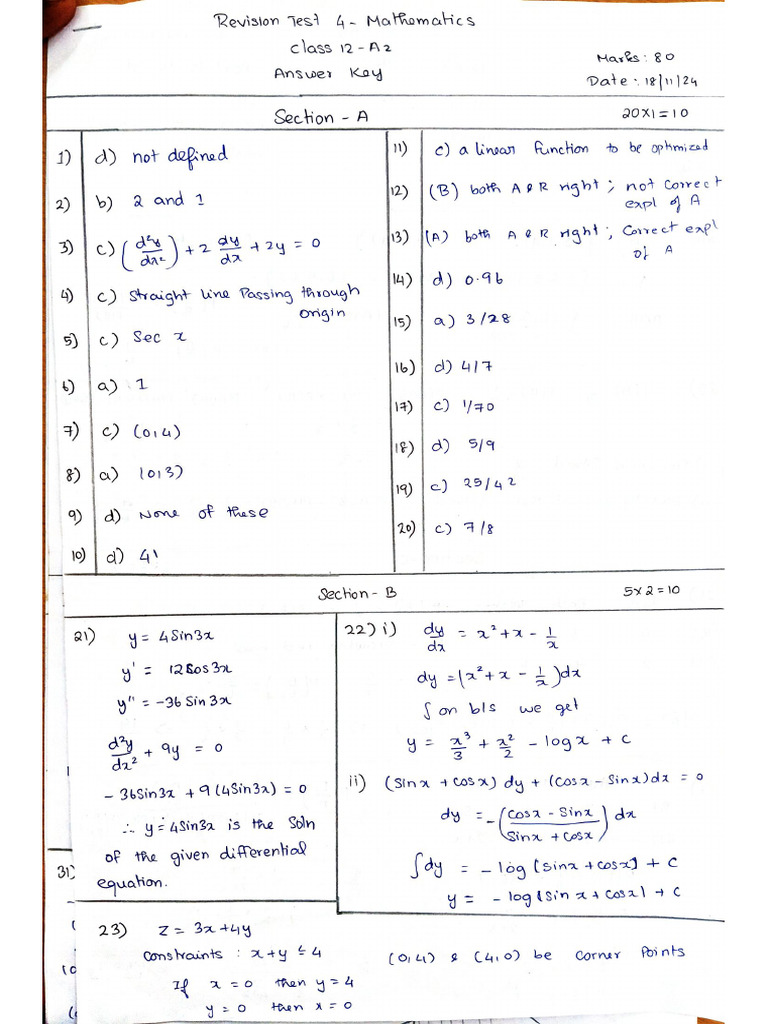 Revision Test 4 - Mathematics
Class 12 - A2
Answer Key
Marks: 80
Date: 18/11/24
Section - A
20x1=10
1) d) not defined
2) b) 2 and 1
3) c) (d²y/dx²) + 2 dy/dx + 2y = 0
4) c) Straight line Passing through
origin
5) c) Sec x
6) a) 1
7) c) (0,4)
8) a) (0,3)
9) d) None of these
10) d) 41
11) c) a linear function to be optimized
12) (B) both A & R right ; not correct
expl of A
13) (A) both A & R right ; Correct expl
of A
14) d) 0.96
15) a) 3/28
16) d) 4/7
17) c) 1/70
18) d) 5/9
19) c) 25/42
20) c) 7/8
Section - B
5x2=10
21) y = 4Sin3x
y' = 12Cos3x
y" = -36 Sin 3x
d²y/dx² + 9y = 0
- 36Sin3x + 9(4Sin3x) = 0
∴ y = 4Sin3x is the Soln
of the given differential
equation.
22) i) dy/dx = x² + x - 1/x
dy = (x² + x - 1/x)dx
∫ on b/s we get
y = x³/3 + x²/2 - log x + c
ii) (Sinx + Cosx) dy + (Cosx - Sinx)dx = 0
dy = -(Cosx - Sinx/Sinx + Cosx) dx
∫dy = - log |Sinx + Cosx| + C
y = - log |Sin x + Cosx| + C
31)
23) Z = 3x + 4y
Constraints : x + y ≤ 4
If x = 0 then y = 4
y = 0 then x = 0
(0,4) & (4,0) be corner Points